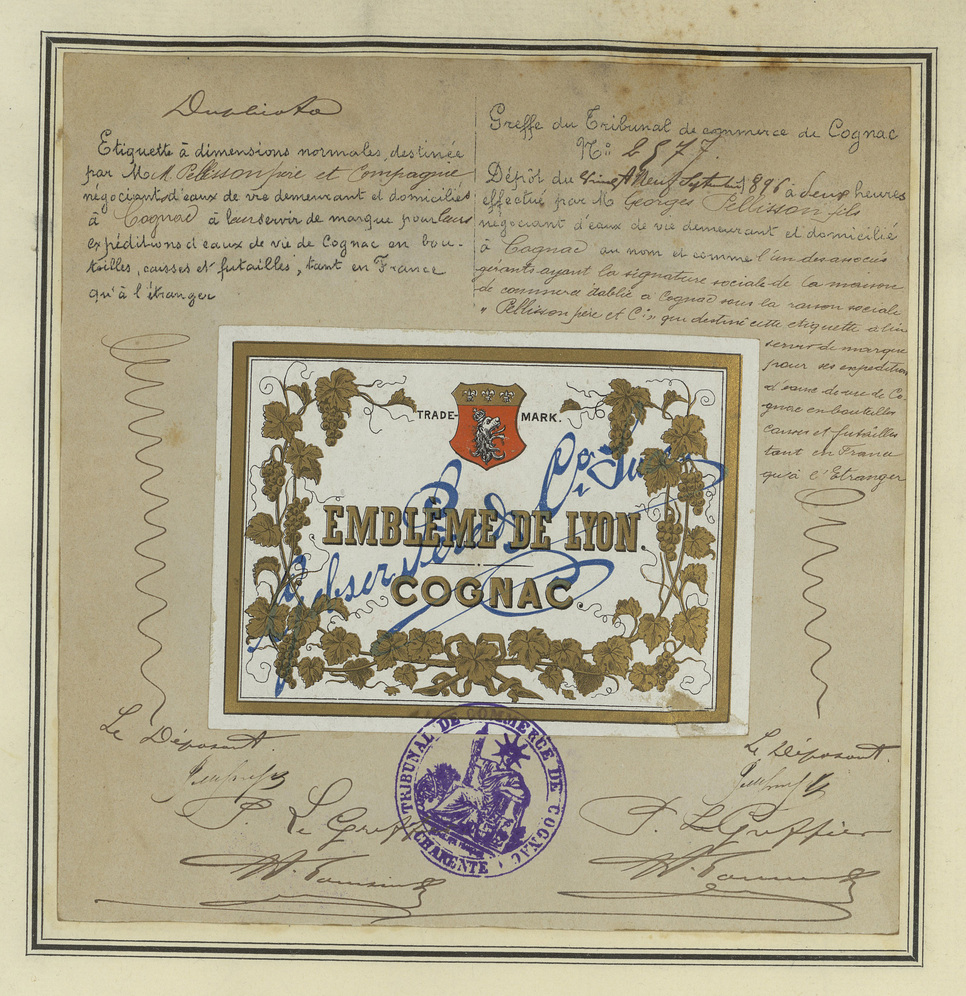 Duplicata
Etiquette à dimensions normales, destinée
par M.M. Pellisson père et Compagnie
négociants d'eaux de vie demeurant et domiciliés
à Cognac à leur servir de marque pour leurs
expéditions d'eaux de vie de Cognac en bou-
teilles, caisses et futailles, tant en France
qu'à l'étranger
Greffe du Tribunal de commerce de Cognac
N° 2977.
Dépôt du Vingt Neuf Septembre 1896 à deux heures
effectué par M Georges Pellisson fils
négociant d'eaux de vie demeurant et domicilié
à Cognac au nom et comme l'un des associés
gérants ayant la signature sociale de la maison
de commerce établie à Cognac sous la raison sociale
"Pellisson père et Cie" qui destine cette etiquette à lui
servir de marque
pour ses expéditions
d'eaux de vie de Co-
gnac en bouteilles
caisses et futailles
tant en France
qu'à l'Etranger
TRADE-MARK.
EMBLÊME DE LYON.
COGNAC
Le Déposant.
P. Le Greffier
Le Déposant.
P. Le Greffier
TRIBUNAL DE COMMERCE DE COGNAC
(CHARENTE)